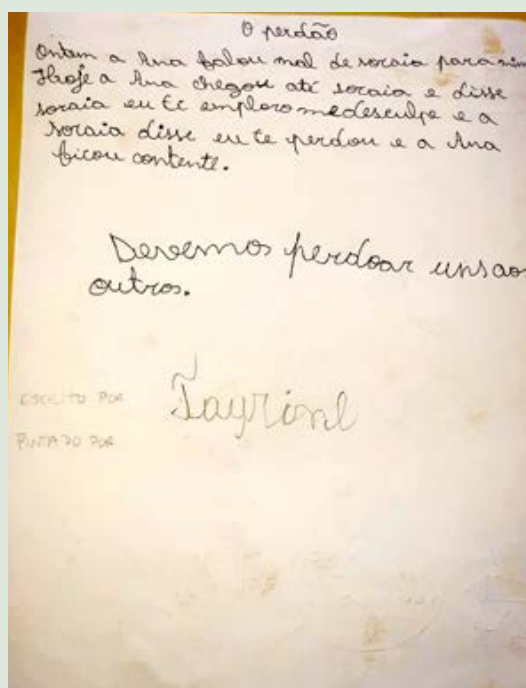 O perdão
Ontem a Ana falou mal de soraia para mim
Hoje a Ana chegou até soraia e disse
soraia eu te emploro medesculpe e a
soraia disse eu te perdou e a Ana
ficou contente.
Devemos perdoar uns aos
outros.
ESCRITO POR Tayrine
PINTADO POR